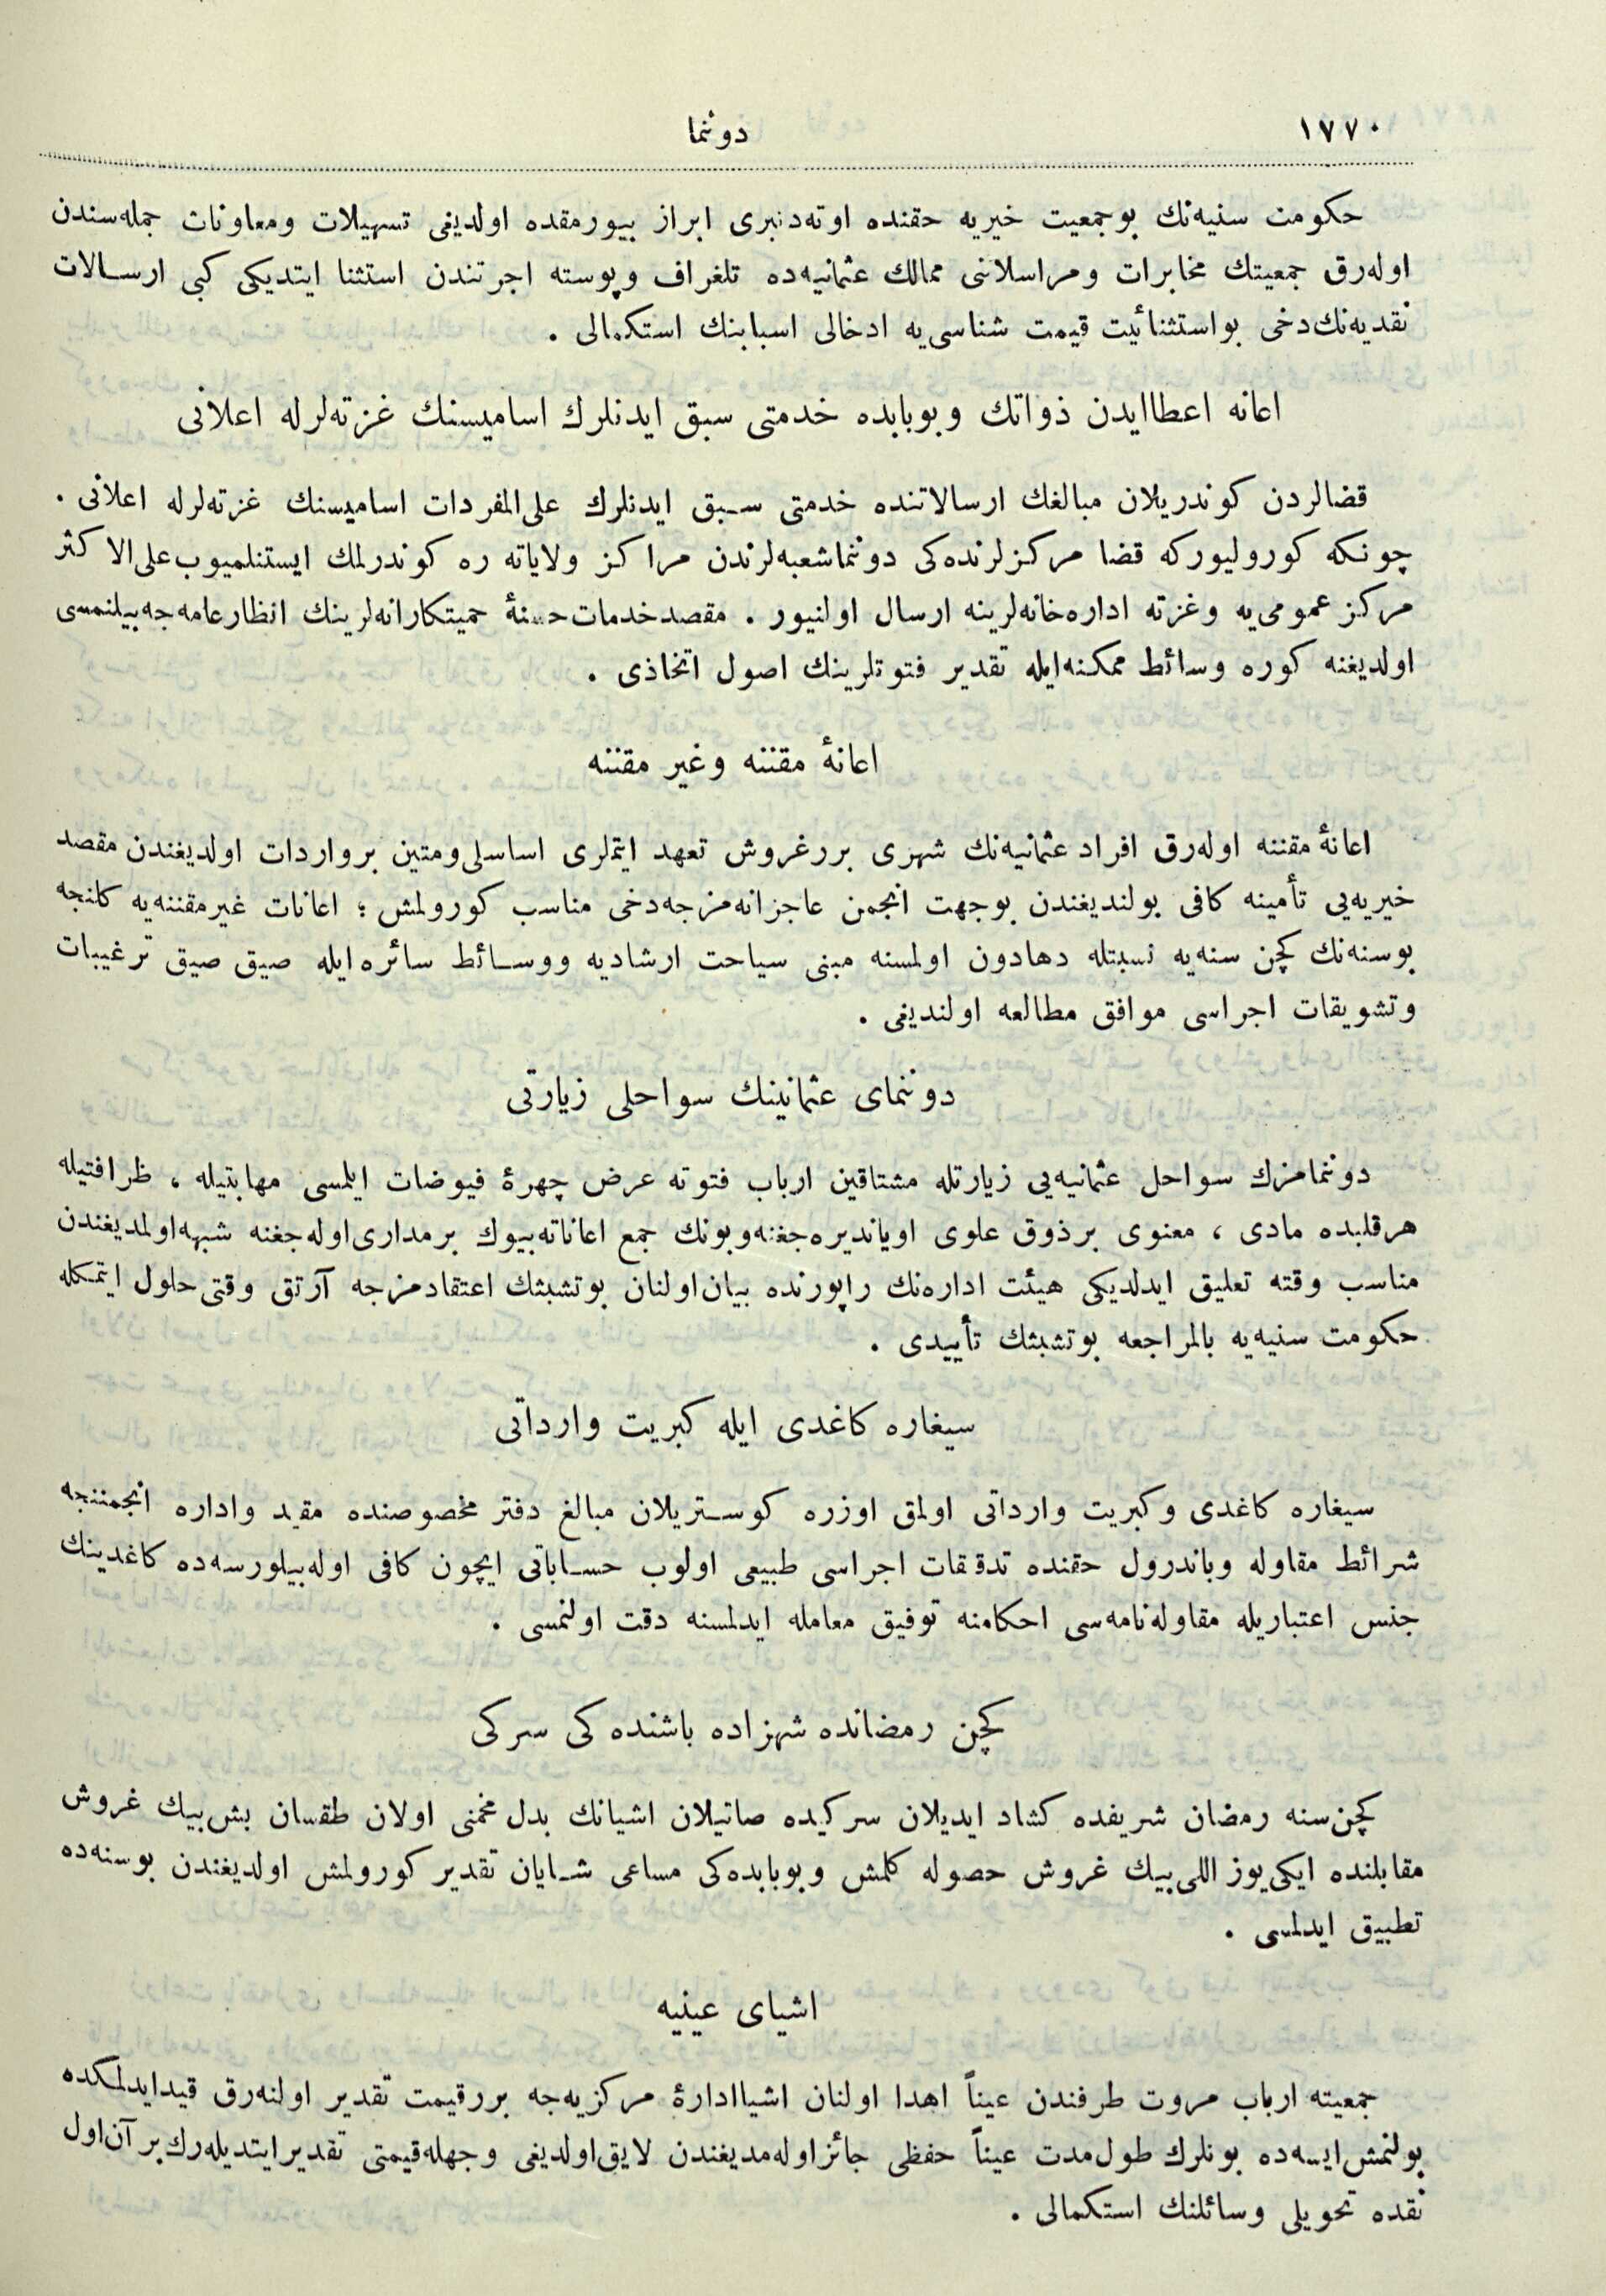 ١٧٧٠
دوننما
حكومت سنيه‌نك بوجمعيت خيريه حقنده اوته‌دنبرى ابراز بيورمقده اولديغى تسهيلات ومعاونات جمله‌سندن
اوله‌رق جمعيتك مخابرات ومراسلاتى ممالك عثمانيه‌ده تلغراف وپوسته اجرتندن استثنا ايتديكى كبى ارسالات
نقديه‌نك‌دخى بواستثنائيت قيمت شناسى‌يه ادخالى اسبابنك استكمالى .
اعانه اعطاايدن ذواتك وبوبابده خدمتى سبق ايدنلرك اساميسنك غزته‌لرله اعلانى
قضالردن كوندريلان مبالغك ارسالاتنده خدمتى سبق ايدنلرك على‌المفردات اساميسنك غزته‌لرله اعلانى .
چونكه كوروليوركه قضا مركزلرنده‌كى دوننماشعبه‌لرندن مراكز ولاياته ره كوندرلمك ايستنلميوب على‌الاكثر
مركز عمومى‌يه وغزته اداره‌خانه‌لرينه ارسال اولنيور . مقصدخدمات‌حسنۀ حميتكارانه‌لرينك انظارعامه‌جه‌بيلنمسى
اولديغنه كوره وسائط ممكنه‌ايله تقدير فتوتلرينك اصول اتخاذى .
اعانۀ مقننه وغير مقننه
اعانۀ مقننه اوله‌رق افراد عثمانيه‌نك شهرى بررغروش تعهد ايتملرى اساسلى‌ومتين برواردات اولديغندن مقصد
خيريه‌يى تأمينه كافى بولنديغندن بوجهت انجمن عاجزانه‌مزجه‌دخى مناسب كورولمش ؛ اعانات غيرمقننه‌يه كلنجه
بوسنه‌نك كچن سنه‌يه نسبتله دهادون اولمسنه مبنى سياحت ارشاديه ووسائط سائره‌ايله صيق صيق ترغيبات
وتشويقات اجراسى موافق مطالعه اولنديغى .
دوننماى عثمانينك سواحلى زيارتى
دوننمامزك سواحل عثمانيه‌يى زيارتله مشتاقين ارباب فتوته عرض چهرۀ فيوضات ايلمسى مهابتيله ، ظرافتيله
هرقلبده مادى ، معنوى برذوق علوى اوياندیره‌جغنه‌وبونك جمع اعاناته‌بيوك برمدارى‌اوله‌جغنه شبهه‌اولمديغندن
مناسب وقته تعليق ايدلديكى هيئت اداره‌نك راپورنده بيان‌اولنان بوتشبثك اعتقادمزجه آرتق وقتى‌حلول ايتمكله
حكومت سنيه‌يه بالمراجعه بوتشبثك تأييدى .
سيغاره كاغدى ايله كبريت وارداتى
سيغاره كاغدى وكبريت وارداتى اولمق اوزره كوستريلان مبالغ دفتر مخصوصنده مقيد واداره انجمننجه
شرائط مقاوله وباندرول حقنده تدقيقات اجراسى طبيعى اولوب حساباتى ايچون كافى اوله‌بيلورسه‌ده كاغدينك
جنس اعتباريله مقاوله‌نامه‌سى احكامنه توفيق معامله ايدلمسنه دقت اولنمسى .
كچن رمضانده شهزاده باشنده كى سركى
كچن‌سنه رمضان شريفده كشاد ايديلان سركيده صاتيلان اشيانك بدل مخمنى اولان طقسان بش‌بيك غروش
مقابلنده ايكى‌يوز اللى‌بيك غروش حصوله كلمش وبوبابده‌كى مساعى شايان تقدير كورولمش اولديغندن بوسنه‌ده
تطبيق ايدلمسى .
اشياى عينيه
جمعيته ارباب مروت طرفندن عيناً اهدا اولنان اشيااداره‌ٔ مركزيه‌جه بررقيمت تقدير اولنه‌رق قيدايدلمكده
بولنمش‌ايسه‌ده بونلرك طول‌مدت عيناً حفظى جائزاوله‌مديغندن لايق‌اولديغى وجهله‌قيمتى تقديرايتديله‌رك‌برآن‌اول
نقده تحويلى وسائلنك استكمالى .